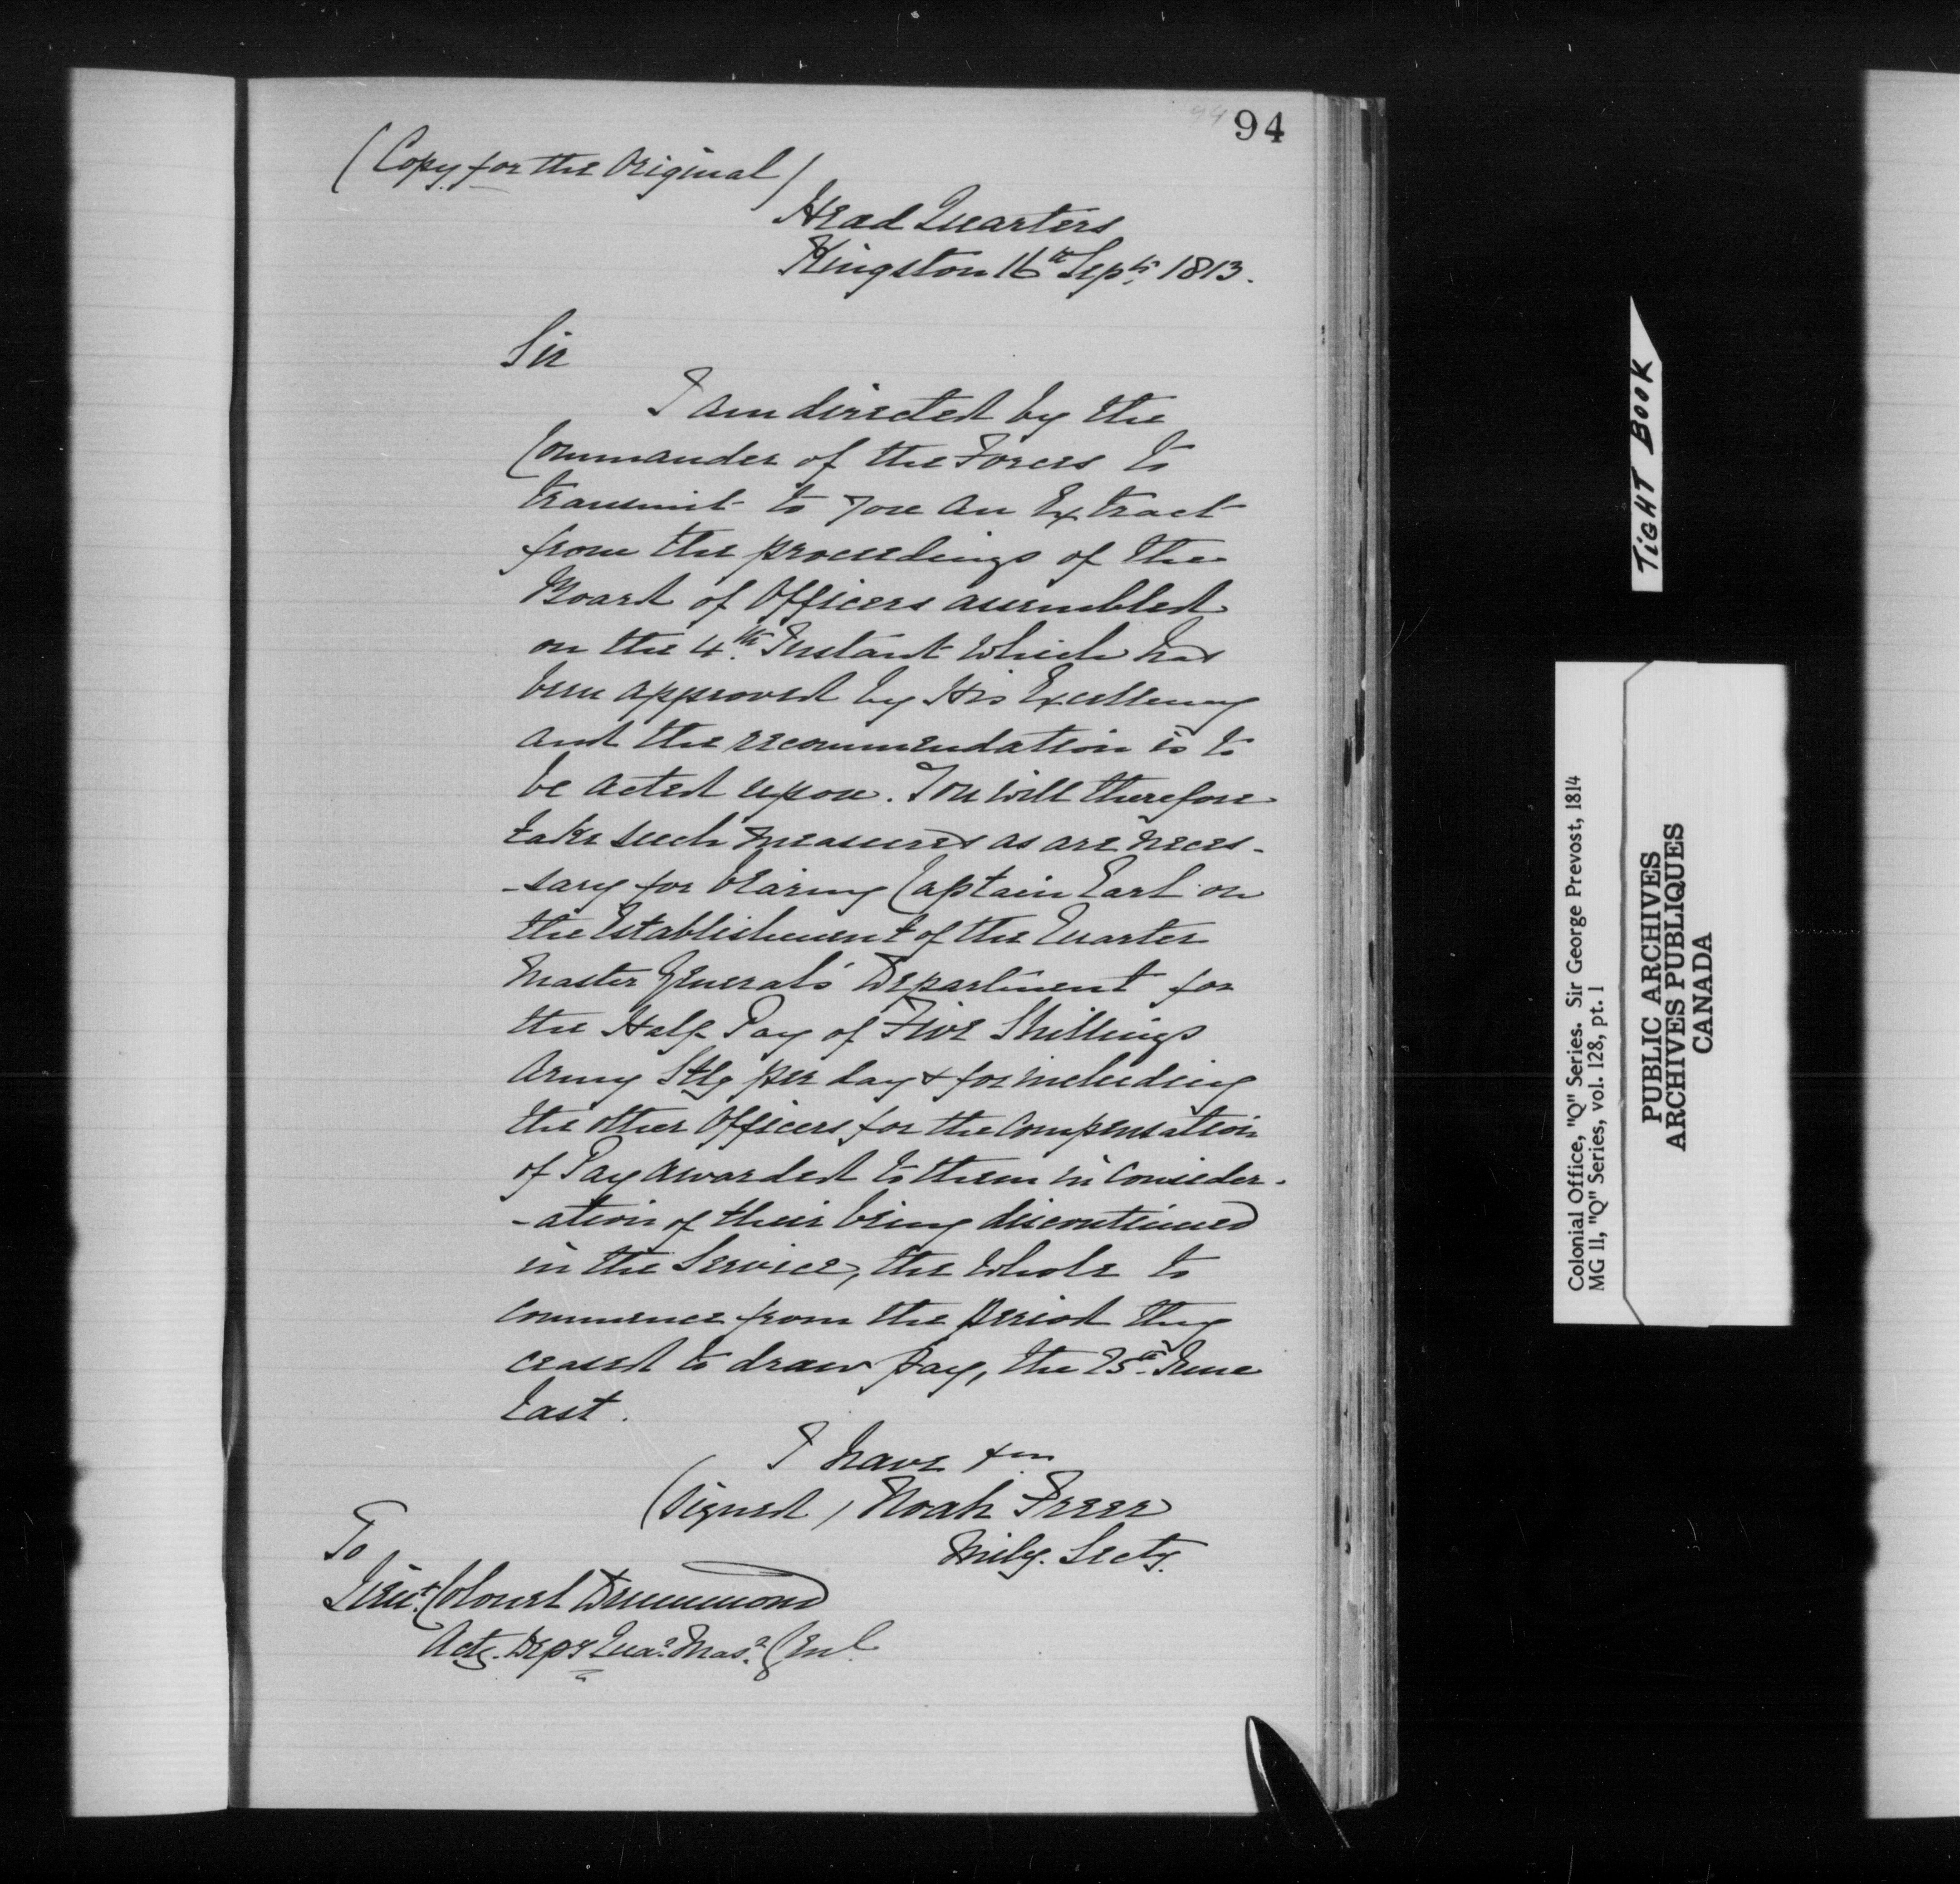 94 94
(Copy for the Original)
Head Quarters
Kingston 16th Sept. 1813.
Sir
I am directed by the
Commander of the Forces to
transmit to you an Extract
from the proceedings of the
Board of Officers assembled
on the 4th. Instant which has
been approved by His Excellency
and the recommendation is to
be acted upon. You will therefore
take such measures as are neces-
-sary for bearing Captain Earl on
the Establishment of the Quarter
Master General's Department for
the Half Pay of Five Shillings
Army Stlg per day & for including
the other Officers for the Compensation
of Pay awarded to them in Consider-
-ation of their being discontinued
in the Service, the whole to
commence from the period they
ceased to draw pay, the 25th. June
last.
I have &c
(signed) Noah Freer
Mily. Secty.
To
Lieut. Colonel Drummond
Actg. Depy Quar. Mas.r Genl
TIGHT BOOK
Colonial Office, "Q" Series. Sir George Prevost, 1814
MG 11, "Q" Series, vol. 128, pt. 1
PUBLIC ARCHIVES
ARCHIVES PUBLIQUES
CANADA